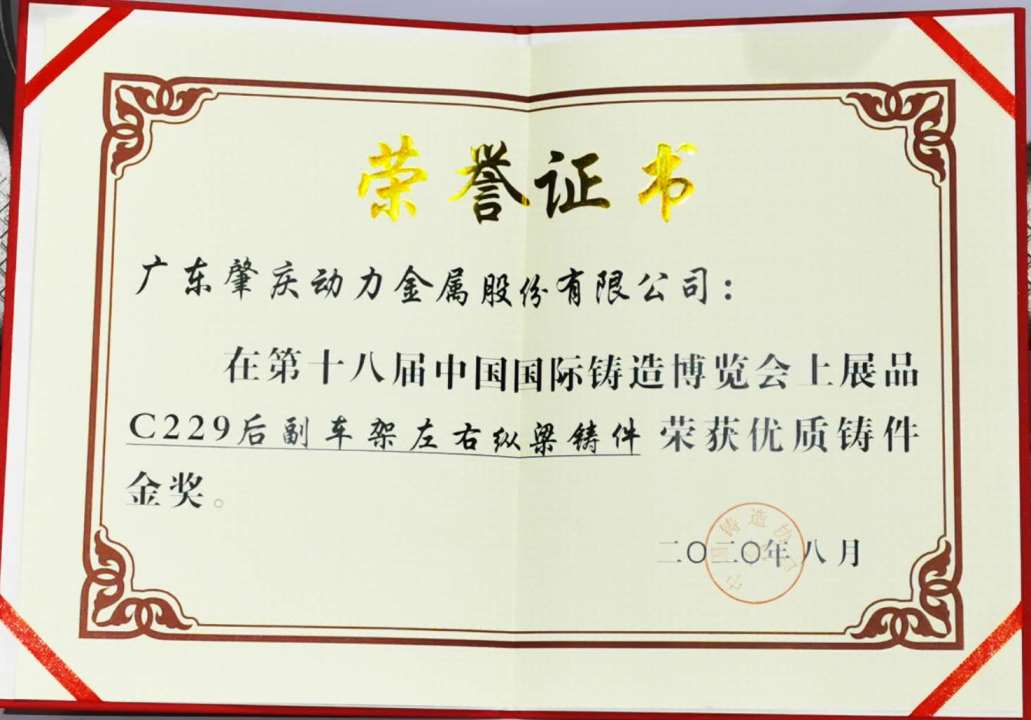 荣誉证书
广东肇庆动力金属股份有限公司：
在第十八届中国国际铸造博览会上展品
C229后副车架左右纵梁铸件 荣获优质铸件
金奖。
二〇二〇年八月
中国铸造协会